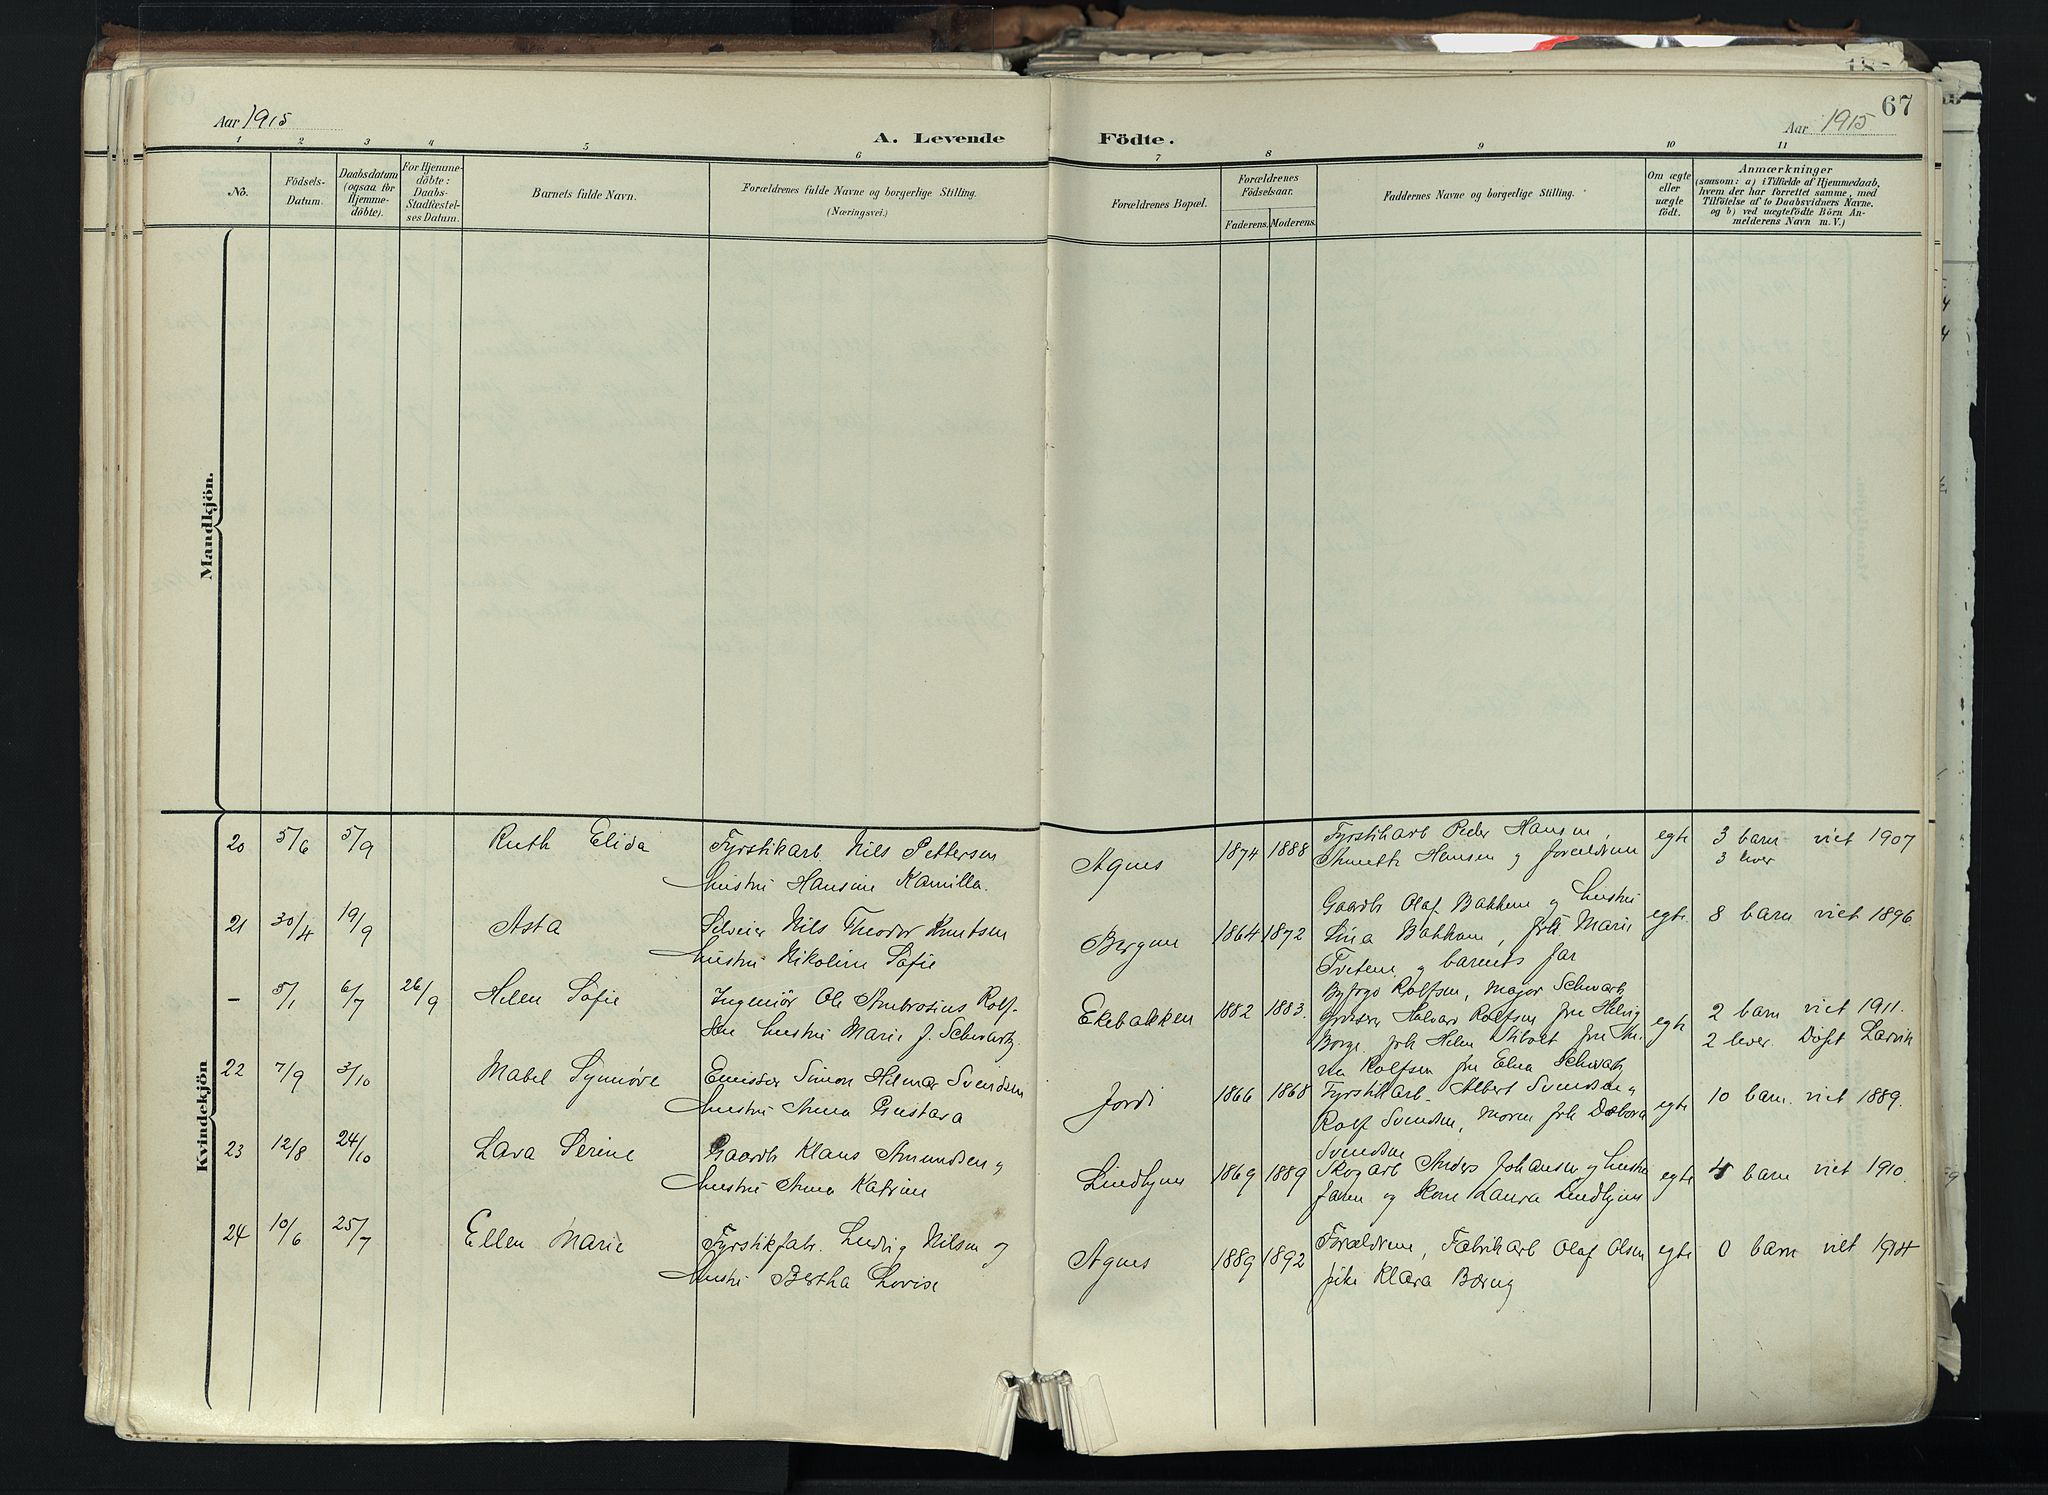 Aar 1915
A. Levende
Födte.
Aar 1915
67
1 2 3 4 5 6 7 8 9 10 11
No.
Födsels-
Datum.
Daabsdatum
(ogsaa for
Hjemme-
döbte).
For Hjemme-
döbte:
Daabs-
Stadfæstel-
ses Datum.
Barnets fulde Navn.
Forældrenes fulde Navne og borgerlige Stilling.
(Næringsvei.)
Forældrenes Bopæl.
Forældrenes
Födselsaar.
Faderens. Moderens.
Faddernes Navne og borgerlige Stilling.
Om ægte
eller
uægte
födt.
Anmærkninger
(saasom: a) i Tilfælde af Hjemmedaab,
hvem der har forrettet samme, med
Tilföielse af to Daabsvidners Navne.
og b) ved uægtefödte Börn An-
melderens Navn m. V.)
Mandkjön.
Kvindekjön
20 5/6 5/9 Ruth Elida
Fyrstikarb. Nils Pettersen
hustru Hansine Kamilla.
Agnes 1874 1888
Fyrstikarb Peder Hansen,
Hansen og forældrene
egte
3 barn viet 1907
3 lever
21 30/4 19/9 Asta
Nils Theodor Knutsen
hustru Nikoline Sofie
Bergene 1864 1872
Gaardb Olaf Bakken og hustru
Lina Bakken, frk Marie
Tvetene og barnets far
egte
8 barn viet 1896.
- 5/1 6/7 26/9 Helen Sofie
Ingeniör Ole Ambrosius Rolf-
sen hustru Marie J. Schwartz.
Ekebakken 1882 1883.
Byfogd Rolfsen, Major Schwartz
Halvard Rolfsen fru Helvig
Borge frk Helen Stibolt fru
Rolfsen fru Elna Schwartz
egte
2 barn viet 1911.
2 lever. Döpt Larvik
22 7/9 3/10 Mabel Synnöve
Emissær Simon Helmer Svendsen
hustru Anna Gustava
Jordi 1866 1868
Fyrstikarb. Albert Svendsen,
Rolf Svendsen, Moren frk Debora
Svendsen
egte
10 barn. viet 1889.
23 12/8 24/10 Lava Serine
Gaardb Klaus Amundsen og
hustru Anna Katrine
Lindhjem 1869 1889
Skogarb Anders Johansen og hustru
faren og Laura Lindhjem
egte
4 barn viet 1910.
24 10/6 25/7 Ellen Marie
Fyrstikfabr. Ludvig Nilsen og
hustru Bertha Lovise
Agnes 1889 1892
Forældrene, Fabrikarb Olaf Olsen
pike Klara Bærug
egte
0 barn viet 1914